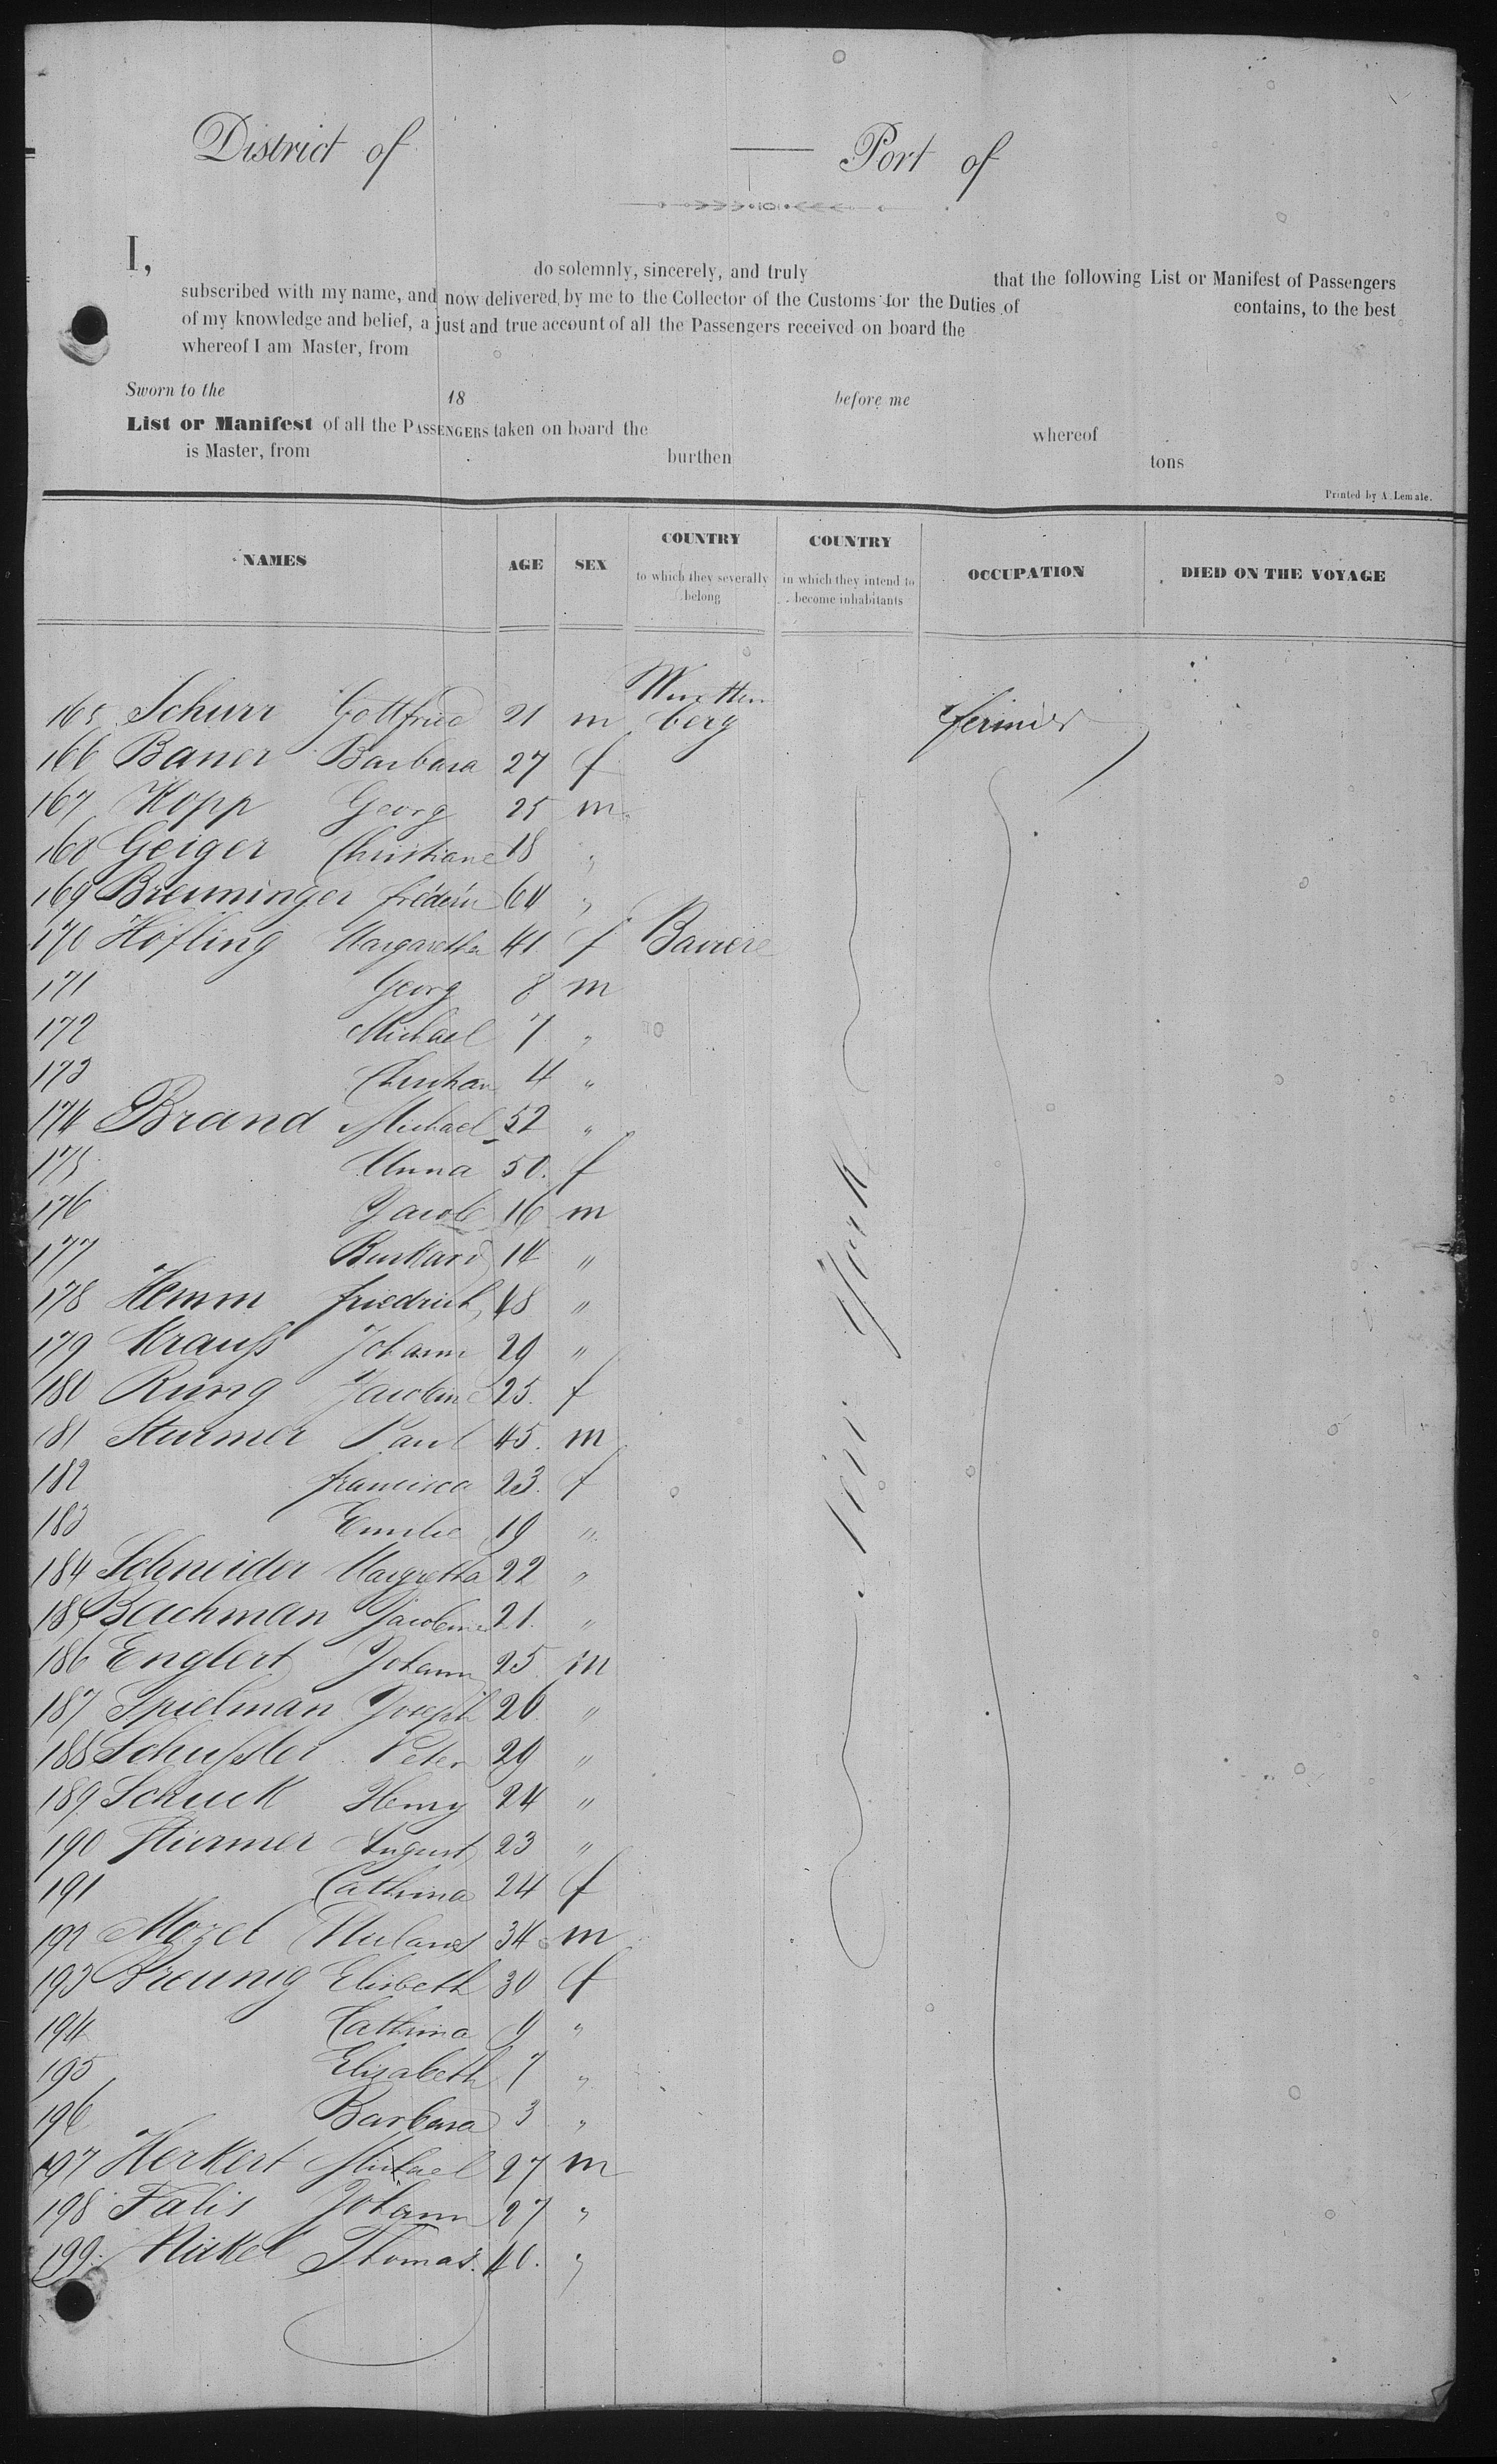 District of — Port of
I, do solemnly, sincerely, and truly that the following List or Manifest of Passengers
subscribed with my name, and now delivered by me to the Collector of the Customs for the Duties of contains, to the best
of my knowledge and belief, a just and true account of all the Passengers received on board the
whereof I am Master, from
Sworn to the 18 before me
List or Manifest of all the PASSENGERS taken on board the whereof
is Master, from burthen tons
Printed by A. Lemale.
NAMES AGE SEX COUNTRY to which they severally belong COUNTRY in which they intend to become inhabitants OCCUPATION DIED ON THE VOYAGE
165 Schurr Gottfried 21 m Wurttemberg fermier
166 Bauer Barbara 27 f
167 Kopp Georg 25 m
168 Geiger Christiane 18 "
169 Breuninger fréderic 64 "
170 Höfling Margaretha 41 f Baviere
171 Georg 8 m
172 Michael 7 "
173 Christian 4 "
174 Brand Michael 52 "
175 Anna 50 f
176 Jacob 16 m
177 Burkard 14 "
178 Hemm friedrich 48 "
179 Krauss Johann 29 "
180 Rung Jacobine 25 f
181 Sturmer Paul 45 m
182 francisca 23 f
183 Emilie 19 "
184 Schneider Margretha 22 "
185 Bachman Jacobine 21 "
186 Englert Johann 25 m
187 Spielman Joseph 26 "
188 Schussler Peter 29 "
189 Schuck Henry 24 "
190 Sturmer August 23 "
191 Cathrina 24 f
192 34 m
193 Breunig Elisbeth 30 f
194 Cathrina 9 "
195 Elizabeth 7 "
196 Barbara 3 "
197 Herkert Michael 27 m
198 Johann 27 "
199. Nickel Thomas. "
New York